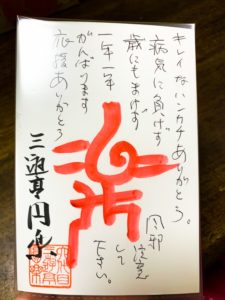 キレイなハンカチありがとう。
病気に負けず
歳にもまけず
一年一年
がんばります
応援ありがとう
風邪
注意
して
下さい。
三遊亭円楽